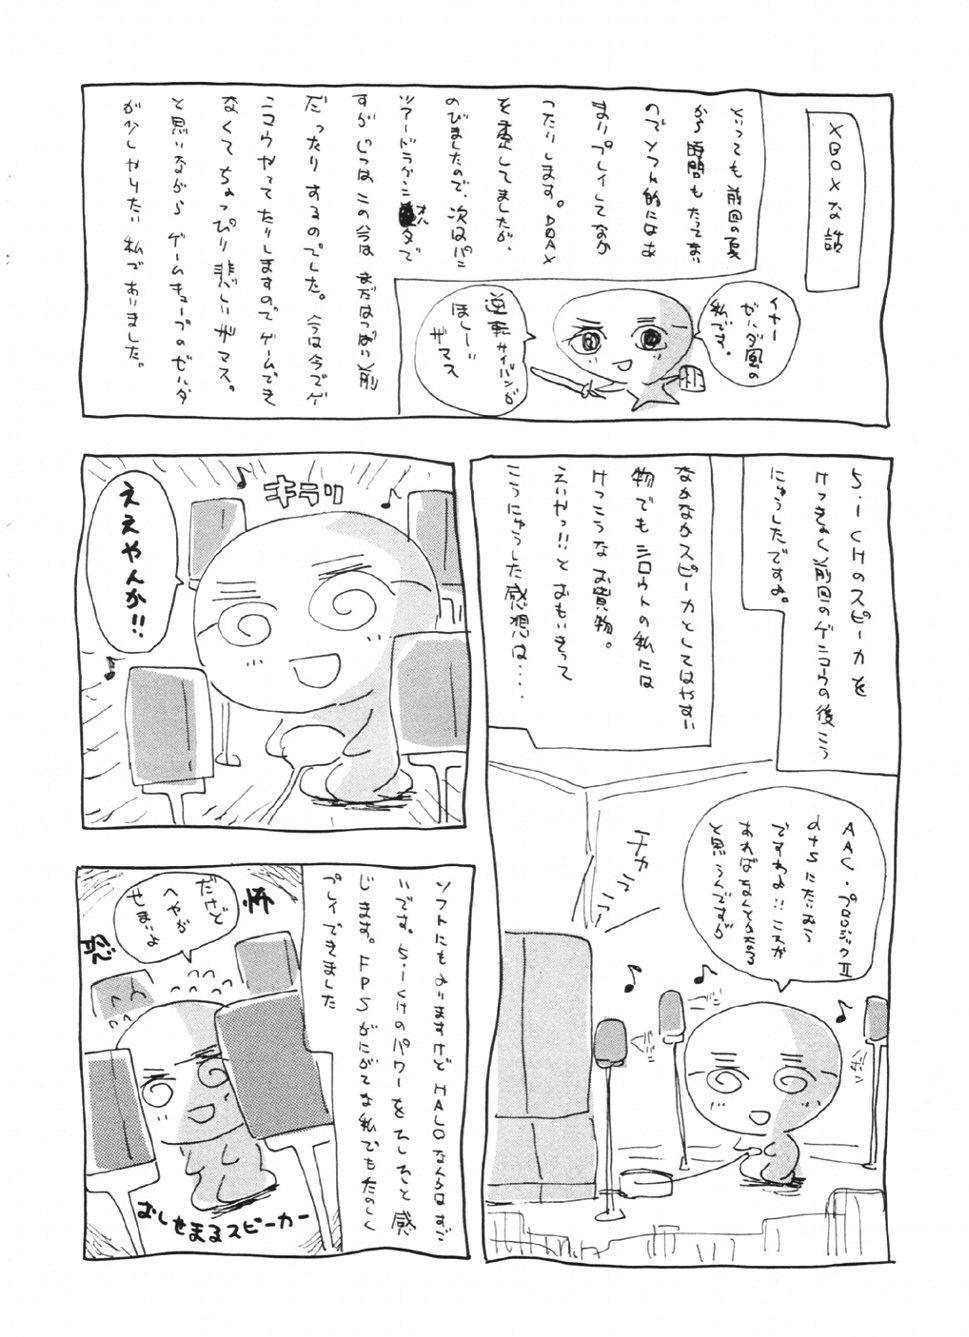 XBOXな話
といっても前回の夏
から時間もたってない
のでソフト的にはあ
まりプレイしてなか
ったりします。DOAX
を楽しんでましたが、
のびましたので、次はパン
ツァードラグーンオルタで
すがじつはこの今はまだはつばい前
だったりするのでした。今は今でゲ
ンコウやってたりしますのでゲームできなくて
なくてちょっぴり悲しいザマス。
と思いながらゲームキューブのゼルダ
が少しやりたい私でありました。
イナー
ゼルダ風の
私です。
逆転サイバンが
ほしい
ザマス
5.1CHのスピーカを
けっきょく前回のゲンコウの後こう
にゅうしたですよ。
なかなかスピーカとしてはやすい
物でもシロウトの私には
けっこうなお買物。
えいやっ!!とおもいきって
こうにゅうした感想は‥‥
AAC・プロロジックⅡ
ですわよ!!これが
あればなんとかなる
と思うんですが
チカ
キラリ
ええやんか!!
ソフトにもよりますけどHALOなんかはすご
いです。5.1CHのパワーをひしひしと感
じます。FPSがにがてな私でもたのしく
プレイできました
だけど
へやが
せまいよ
怖
おしせまるスピーカー